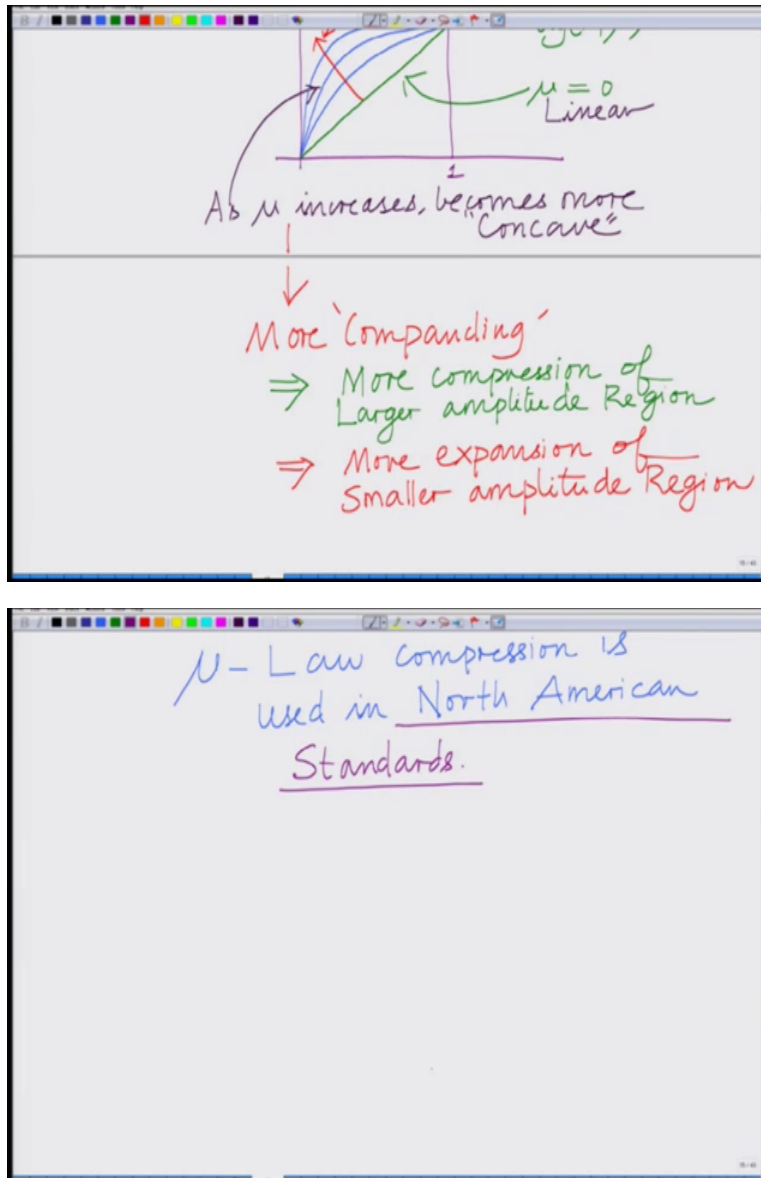 μ = 0
Linear
1
As μ increases, becomes more
"Concave"
More 'Companding'
⇒ More compression of
Larger amplitude Region
⇒ More expansion of
Smaller amplitude Region
μ-Law compression is
used in North American
Standards.